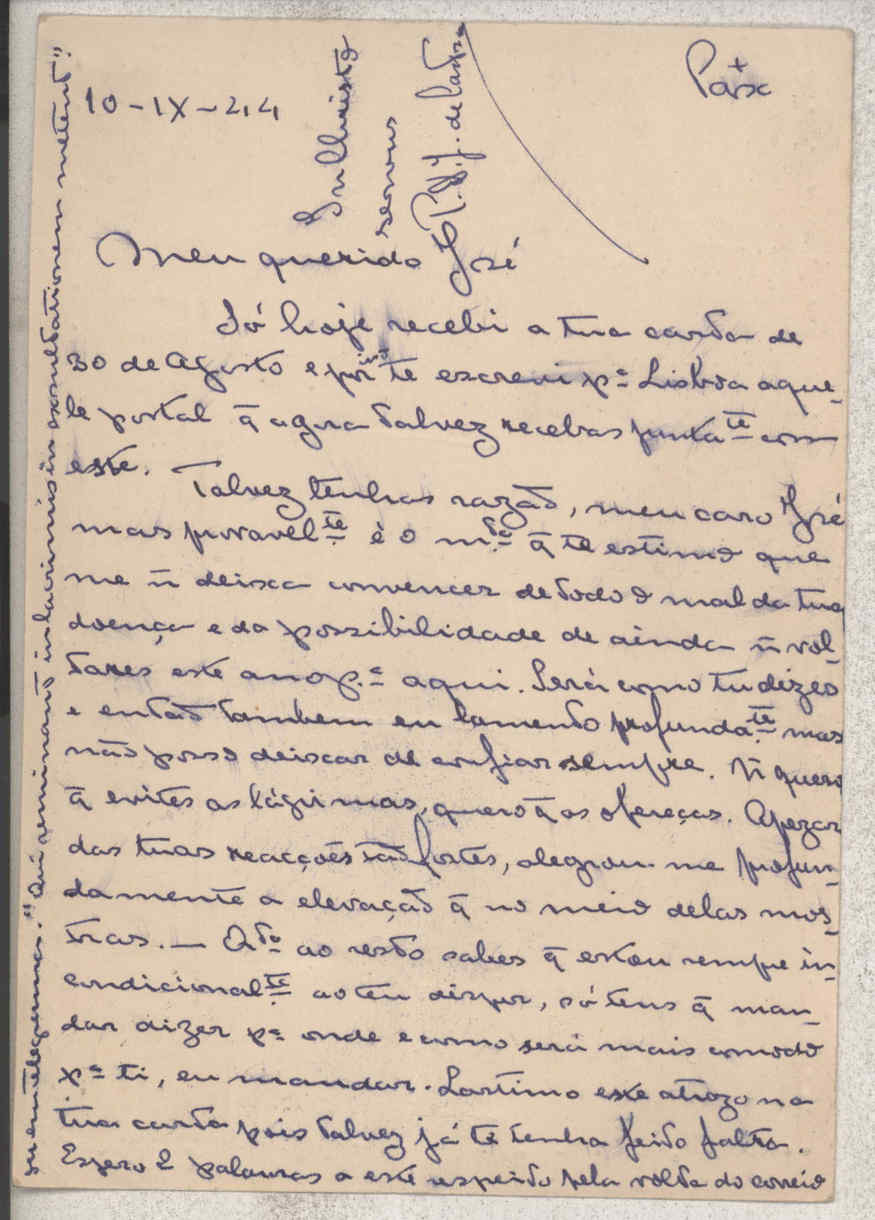 Pax
10-IX-44
Meu querido José
Só hoje recebi a tua carta de
30 de Agosto e por isso te escrevi pª Lisboa aque-
le postal q̄ agora talvez recebas juntaᵗᵉ com
este. Talvez tenhas razão, meu caro José
mas provavelᵗᵉ é o mᵗᵒ q̄ te estimo que
me ñ deixa convencer de todo o mal da tua
doença e da possibilidade de ainda ñ vol-
tares este ano pª aqui. Será como tu dizes
e então tambem eu lamento profundaᵗᵉ mas
não posso deixar de confiar sempre. Ñ quero
q̄ evites as lágrimas, quero q̄ as ofereças. Apezar
das tuas reacções tão fortes, alegrou-me profun-
damente a elevação q̄ no meio delas mos-
tras. — Qᵗᵒ ao resto sabes q̄ estou sempre in-
condicionalᵗᵉ ao teu dispor, só tens q̄ man-
dar dizer pª onde e como será mais comodo
pª ti, eu mandar. Lastimo este atrazo na
tua carta pois talvez já te tenha feito falta.
Espero 2 palavras a este respeito pela volta do correio
ou em telegrama. "Qui seminant in lacrimis in exsultatione metent".
In Christo
servus
P. J. de Castro